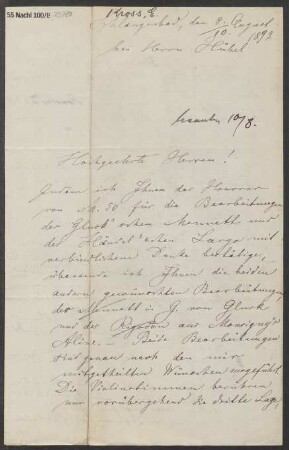 55 Nachl 100/B
Kross, E
Schlangenbad, den 8. August
1893
bei Herrn Hübel
10/8.
Hochgeehrte Herren!
Indem ich Ihnen das Honorar
von M. 50 für die Bearbeitungen
der Gluck'schen Menuett und
des Händel'schen Largo mit
verbindlichem Danke bestätige,
übersende ich Ihnen die beiden
andern gewünschten Bearbeitungen,
der Menuett in G. von Gluck
und des Rigodon aus Monsigny's
Aline. – Beide Bearbeitungen
sind genau nach den mir
mitgetheilten Wünschen ausgeführt.
Die Violinstimmen berühren
nur vorübergehend die dritte Lage,